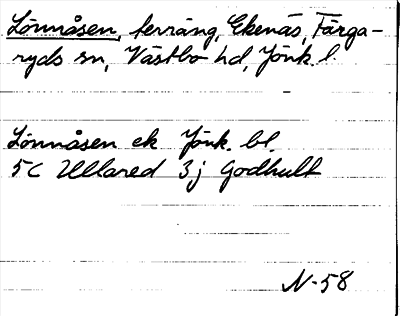 Lönnåsen, terräng, Ekenäs, Färga-
ryds sn, Västbo hd, Jönk. l.
Lönnåsen ek Jönk. bl.
5C Ullared 3j Godhult
N-58